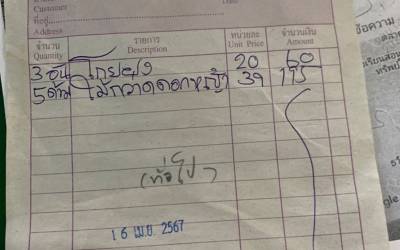 Customer
ที่อยู่
Address
Date
จำนวน รายการ หน่วยละ จำนวนเงิน
Quantity Description Unit Price Amount
3 อัน 20 60
5 ด้าม ไม้กวาดดอกหญ้า 39 195
16 เม.ย. 2567
ข้อความ